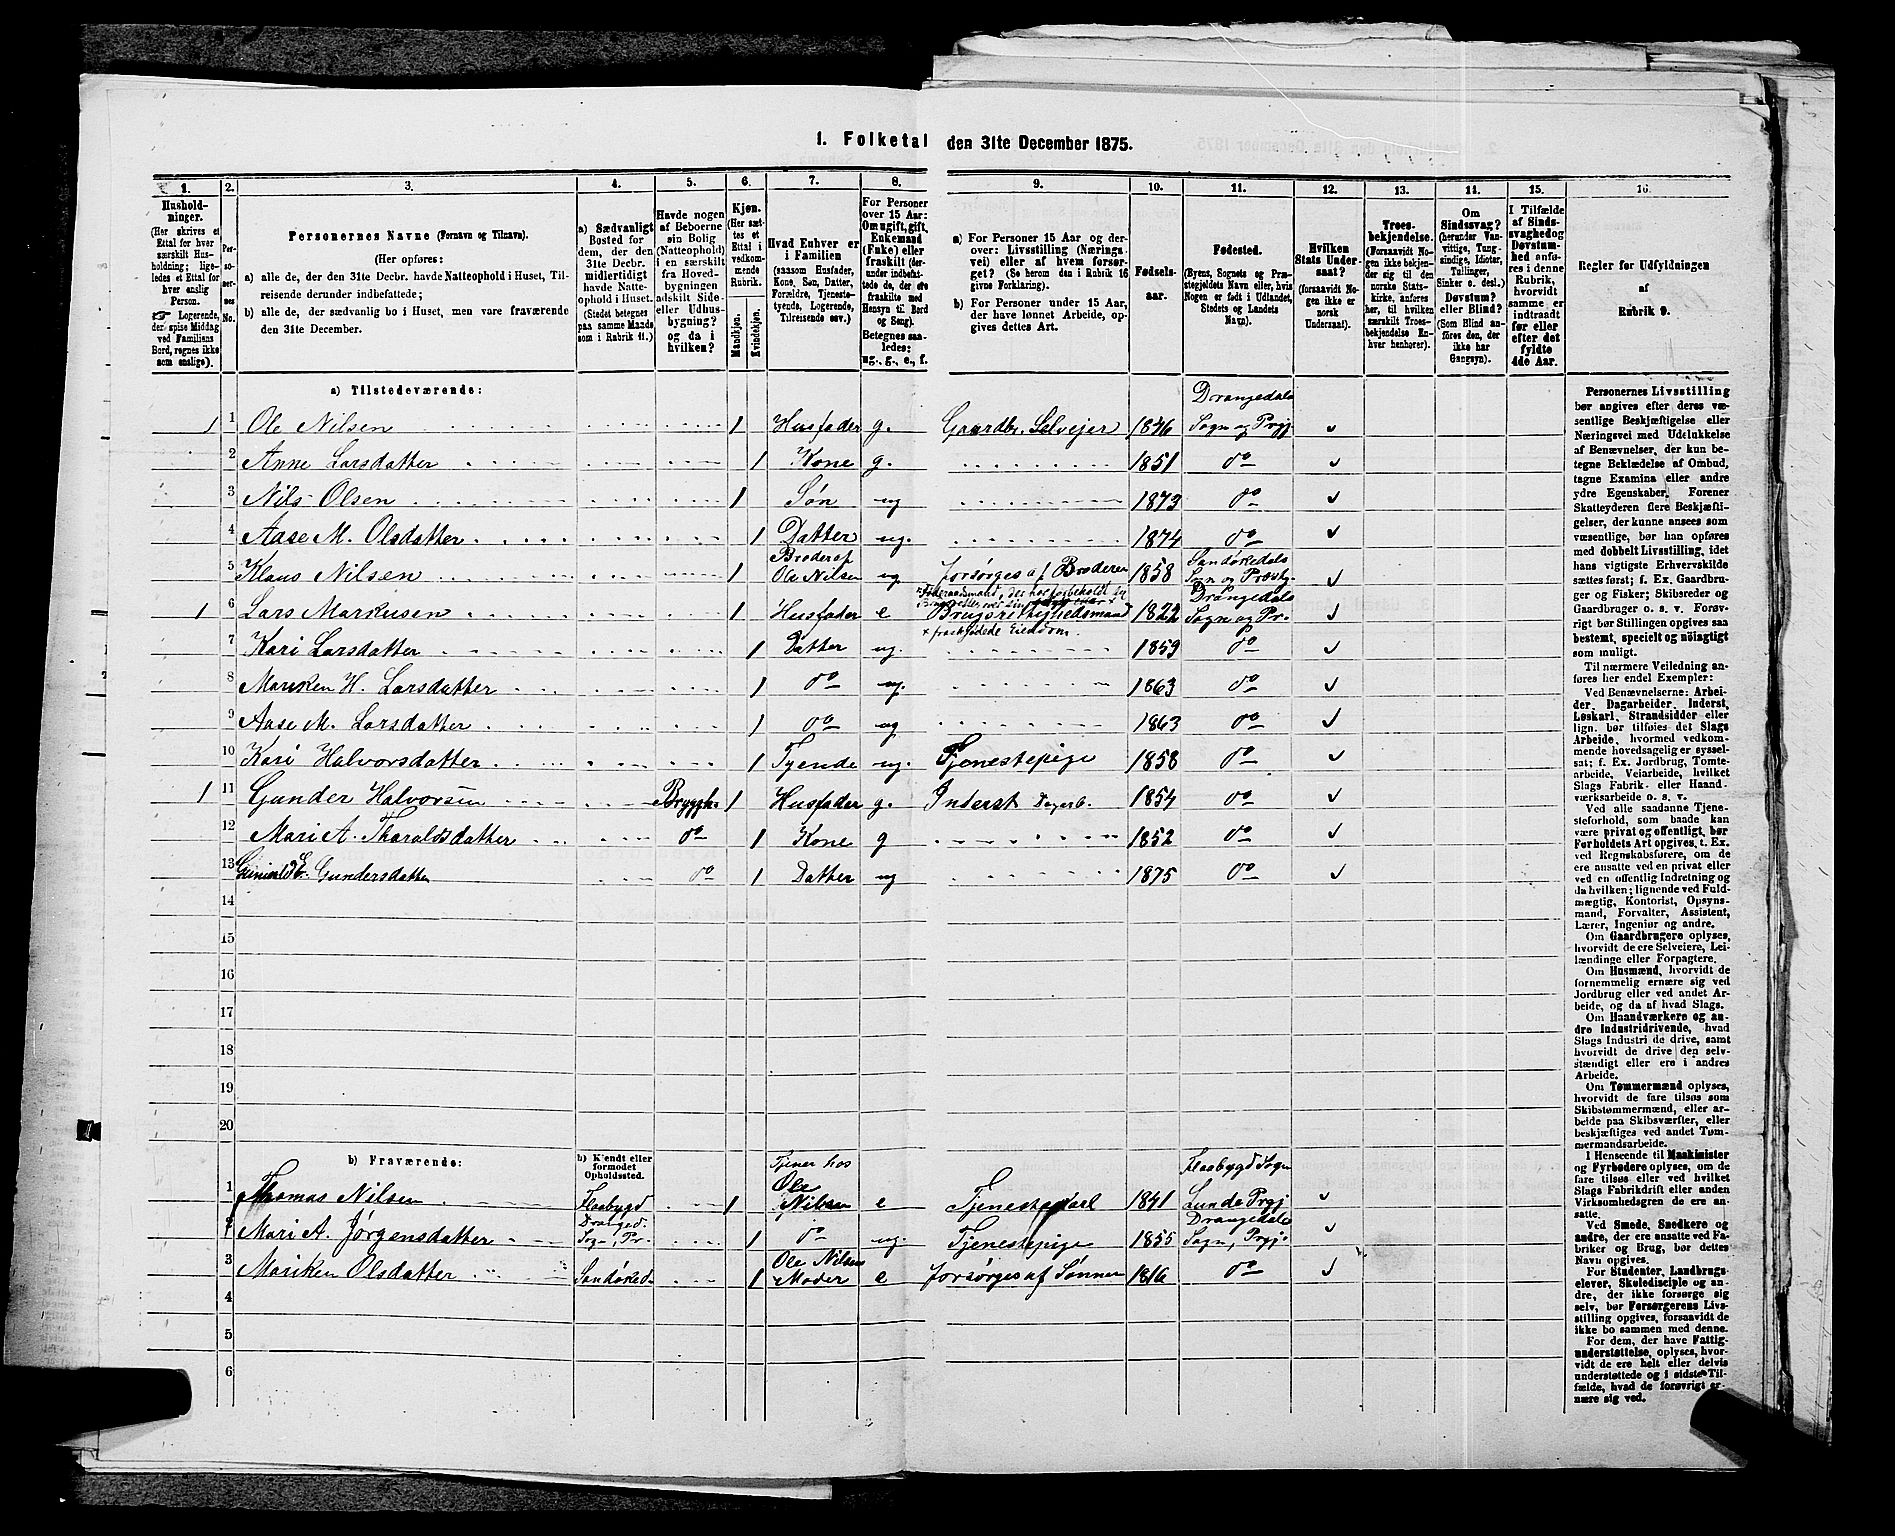 1. Folketal den 31te December 1875.
1. 2. 3. 4. 5. 6. 7. 8. 9. 10. 11. 12. 13. 14. 15. 16.
Hushold-
ninger.
(Her skrives et
Ettal for hver
særskilt Hus-
holdning; lige-
ledes et Ettal for
hver enslig
Person.
☞ Logerende,
der spise Middag
ved Familiens
Bord, regnes ikke
som enslige).
Per-
so-
ner-
nes
No.
Personernes Navne (Fornavn og Tilnavn).
(Her opføres:
a) alle de, der den 31te Decbr. havde Natteophold i Huset, Til-
reisende derunder indbefattede;
b) alle de, der sædvanlig bo i Huset, men vare fraværende
den 31te December.
a) Sædvanligt
Bosted for
dem, der den
31te Decbr.
midlertidigt
havde Natte-
ophold i Huset.
(Stedet betegnes
paa samme Maade
som i Rubrik 11.)
Havde nogen
af Beboerne
sin Bolig
(Natteophold)
i en særskilt
fra Hoved-
bygningen
adskilt Side-
eller Udhus-
bygning?
og da i
hvilken?
Kjøn.
(Her sæt-
tes et
Ettal i
vedkom-
mende
Rubrik.
Mandkjøn.
Kvindekjøn.
Hvad Enhver er
i Familien
(saasom Husfader,
Kone, Søn, Datter,
Forældre, Tjeneste-
tyende, Logerende,
Tilreisende osv.)
For Personer
over 15 Aar:
Om ugift, gift,
Enkemand
(Enke) eller
fraskilt (der-
under indbefat-
tede de, der ere
fraskilte med
Hensyn til Bord
og Seng).
Betegnes saa-
ledes:
ug., g., e., f.
a) For Personer 15 Aar og der-
over: Livsstilling (Nærings-
vei) eller af hvem forsør-
get? (Se herom den i Rubrik 16
givne Forklaring).
b) For Personer under 15 Aar,
der have lønnet Arbeide, op-
gives dettes Art.
Fødsels-
aar.
Fødested.
(Byens, Sognets og Præ-
stegjeldets Navn eller, hvis
Nogen er født i Udlandet,
Stedets og Landets
Navn).
Hvilken
Stats Under-
saat?
(forsaavidt No-
gen ikke er
norsk
Undersaat).
Troes-
bekjendelse.
(Forsaavidt No-
gen ikke bekjen-
der sig til den
norske Stats-
kirke, anføres
her, til hvilken
særskilt Troes-
bekjendelse En-
hver henhører).
Om
Sindssvag?
(herunder Van-
vittige, Tung-
sindige, Idioter,
Tullinger,
Sinker o. desl.)
Døvstum?
eller Blind?
(Som Blind an-
føres den, der
ikke har
Gangsyn).
I Tilfælde
af Sinds-
svaghed og
Døvstum-
hed anfø-
res i denne
Rubrik,
hvorvidt
samme er
indtraadt
før eller
efter det
fyldte
4de Aar.
Regler for Udfyldningen
af
Rubrik 9.
a) Tilstedeværende:
Drangedals
1 1 Ole Nilsen 1 Husfader g. Gaardbr. Selveier 1846 Sogn og Prgj
2 Anne Larsdatter 1 Kone g. 1851 do
3 Nils Olsen 1 Søn ug 1873 do
4 Aase M. Olsdatter 1 Datter ug. 1874 do
Broder af Sandøkedals
5 Klaus Nilsen 1 Ole Nilsen ug forsørges af Broderen 1858 Sogn og Præstg.
Drangedals
1 6 Lars Markusen 1 Husfader e 1822 Sogn og Pr.
x fraskjødede Eiendom.
7 Kari Larsdatter 1 Datter ug. 1859 do
8 Mariken H. Larsdatter 1 do ug. 1863 do
9 Aase M. Larsdatter 1 do ug 1863 do
10 Kari Halvorsdatter 1 Tyende ug. Tjenestepige 1858 do
1 11 Gunder Halvorsen Bryggh. 1 Husfader g. Inderst Dagarb. 1854 do
12 Mari A. Tharaldsdatter do 1 Kone g 1852 do
13 Gundersdatter do 1 Datter ug 1875 do
14
15
16
17
18
19
20
b) Fraværende:
b) Kjendt eller
formodet
Opholdssted.
Tjener hos Flaabygd Sogn
1 Thomas Nilsen Flaabygd 1 Ole Nilsen e Tjenestekarl 1841 Lunde Prgj
Dranged. Drangedals
2 Mari A. Jørgensdatter Sogn, Pr. 1 do ug. Tjenestepige 1855 Sogn, Prgj.
Ole Nilsens
3 Mariken Olsdatter Sandøked. 1 Moder e forsørges af Sønnen 1816 do
4
5
6
Personernes Livsstilling
bør angives efter deres væ-
sentlige Beskjæftigelse eller
Næringsvei med Udelukkelse
af Benævnelser, der kun be-
tegne Beklædelse af Ombud,
tagne Examina eller andre
ydre Egenskaber. Forener
Skatteyderen flere Beskjæfti-
gelser, der kunne ansees som
væsentlige, bør han opføres
med dobbelt Livsstilling, idet
hans vigtigste Erhvervskilde
sættes først; f. Ex. Gaardbru-
ger og Fisker; Skibsreder og
Gaardbruger o. s. v. Forøv-
rigt bør Stillingen opgives saa
bestemt, specielt og nøiagtigt
som muligt.
Til nærmere Veiledning an-
føres her endel Exempler:
Ved Benævnelserne: Arbei-
der, Dagarbeider, Inderst,
Løskarl, Strandsidder eller
lign. bør tilføies det Slags
Arbeide, hvormed vedkom-
mende hovedsagelig er syssel-
sat; f. Ex. Jordbrug, Tomte-
arbeide, Veiarbeide, hvilket
Slags Fabrik- eller Haand-
værksarbeide o. s. v.
Ved alle saadanne Tjene-
steforhold, som baade kan
være privat og offentligt, bør
Forholdets Art opgives, t. Ex.
ved Regnskabsførere, om de
ere ansatte ved en privat eller
ved en offentlig Indretning og
da hvilken; lignende ved Fuld-
mægtig, Kontorist, Opsyns-
mand, Forvalter, Assistent,
Lærer, Ingeniør og andre.
Om Gaardbrugere oplyses,
hvorvidt de ere Selveiere, Lei-
lændinge eller Forpagtere.
Om Husmænd, hvorvidt de
fornemmelig ernære sig ved
Jordbrug eller ved andet Ar-
beide, og da af hvad Slags.
Om Haandværkere og an-
dre Industridrivende, hvad
Slags Industri de drive, samt
hvorvidt de drive den selv-
stændigt eller ere i andres
Arbeide.
Om Tømmermænd oplyses,
hvorvidt de fare tilsøs som
Skibstømmermænd, eller ar-
beide paa Skibsværfter, eller
beskjæftiges ved andet Tøm-
mermandsarbeide.
I Henseende til Maskinister
og Fyrbødere oplyses, om de
fare tilsøs eller ved hvilket
Slags Fabrikdrift eller anden
Virksomhedsgren de ere an-
satte.
Ved Smede, Snedkere og
andre, der ere ansatte ved Fa-
briker og Brug, bør dettes
Navn opgives.
For Studenter, Landbrugs-
elever, Skoledisciple og an-
dre, der ikke forsørge sig
selv, bør Forsørgerens Livs-
stilling opgives, forsaavidt de
ikke bo sammen med denne.
For dem, der have Fattig-
understøttelse, oplyses, hvor-
vidt de ere helt eller delvis
understøttede og i sidste Til-
fælde, hvad de forøvrigt er-
nære sig ved.